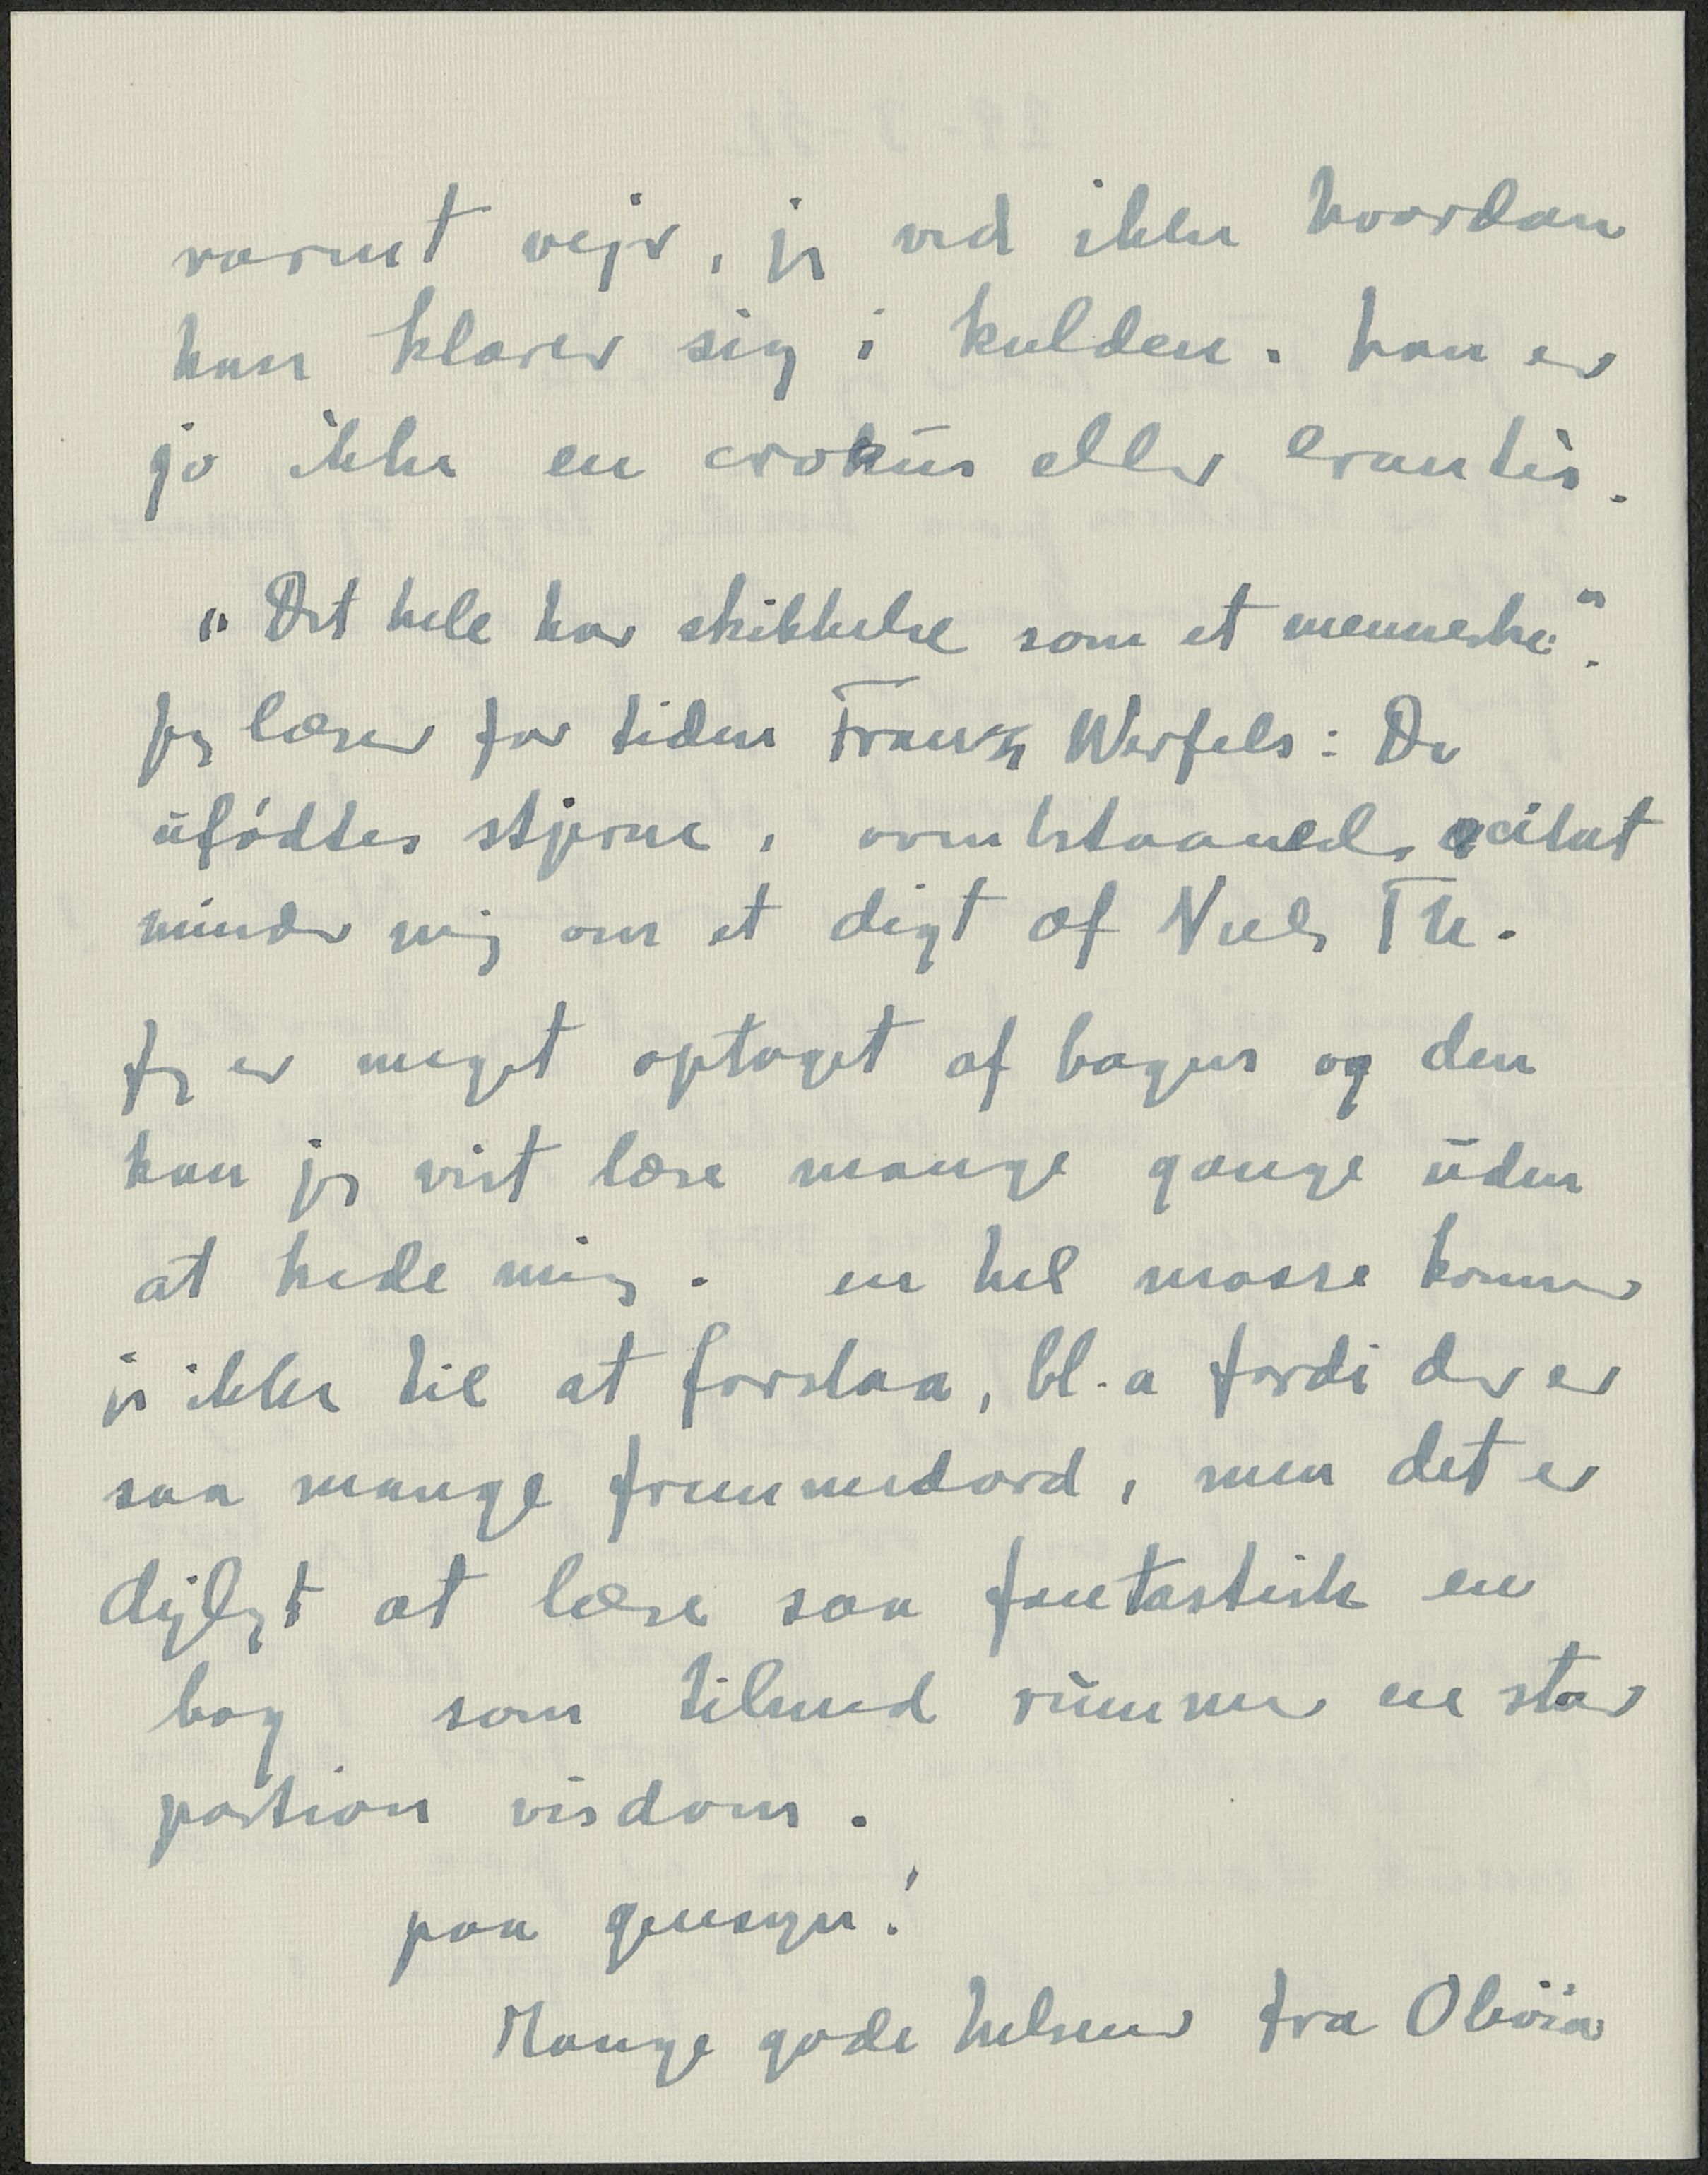 varmt vejr, jeg ved ikke hvordan
han klarer sig i kulden. han er
jo ikke en crokus eller erantis.
"Det hele har skikkelse som et menneske".
Jeg læser for tiden Franz Werfels: De
ufødtes stjerne, ovenstaaende citat
minder mig om et digt af Niels Th.
Jeg er meget optaget af bogen og den
kan jeg vist læse mange gange uden
at kede mig. en hel masse kommer
jeg ikke til at forstaa, bl.a fordi der er
saa mange fremmedord, men det er
dejligt at læse saa fantastisk en
bog som tilmed rummer en stor
portion visdom.
paa gensyn!
Mange gode hilsener fra Olivia